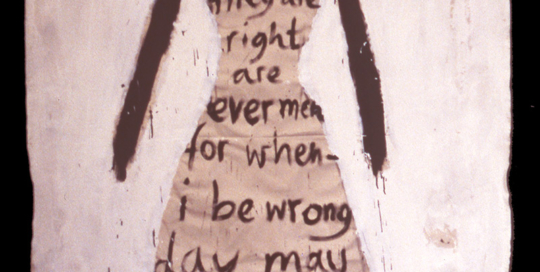 they are
right
are
ever men
for when-
i be wrong
day may